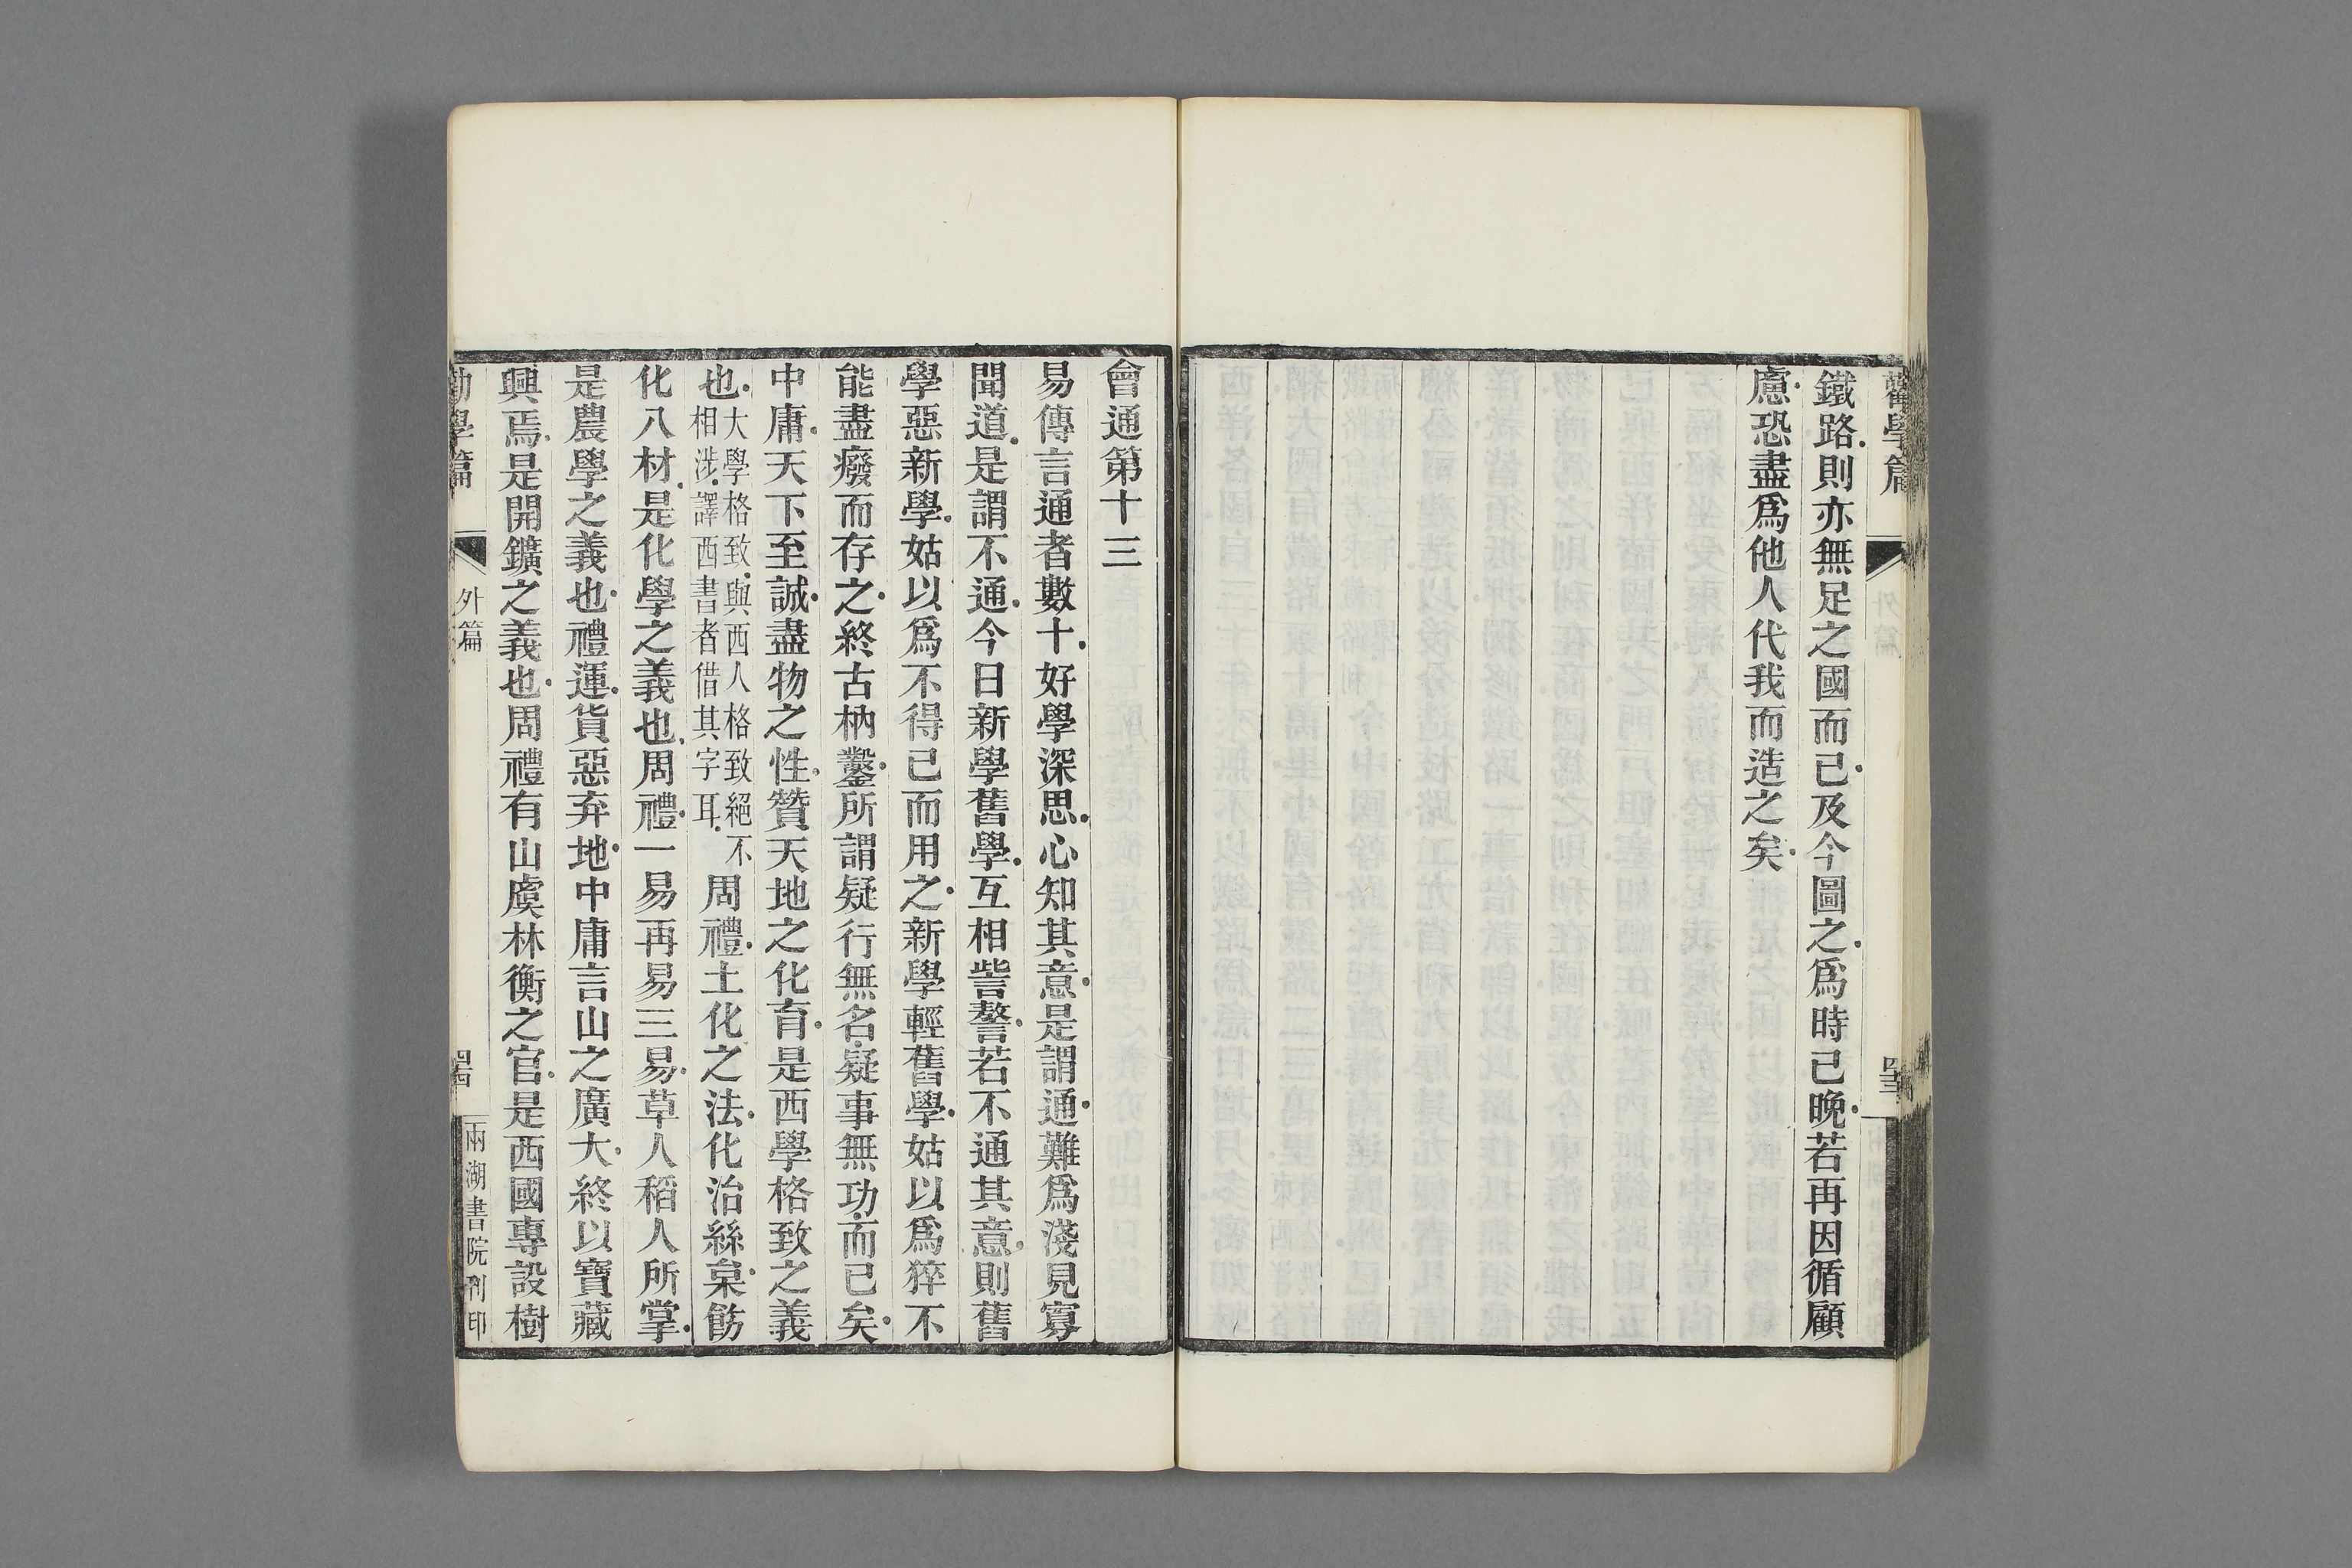 勸學篇
外篇
四十三
鐵路則亦無足之國而已及今圖之爲時已晚若再因循顧
慮恐盡爲他人代我而造之矣
會通第十三
易傳言通者數十好學深思心知其意是謂通難爲淺見寡
聞道是謂不通今日新學舊學互相訾謷若不通其意則舊
學惡新學姑以爲不得已而用之新學輕舊學姑以爲猝不
能盡癈而存之終古枘鑿所謂疑行無名疑事無功而已矣
中庸天下至誠盡物之性贊天地之化育是西學格致之義
也大學格致與西人格致絕不相涉譯西書者借其字耳周禮土化之法化治絲枲飭
化八材是化學之義也周禮一易再易三易草人稻人所掌
是農學之義也禮運貨惡弃地中庸言山之廣大終以寶藏
興焉是開鑛之義也周禮有山虞林衡之官是西國專設樹
勸學篇
外篇
四十四
兩湖書院刊印